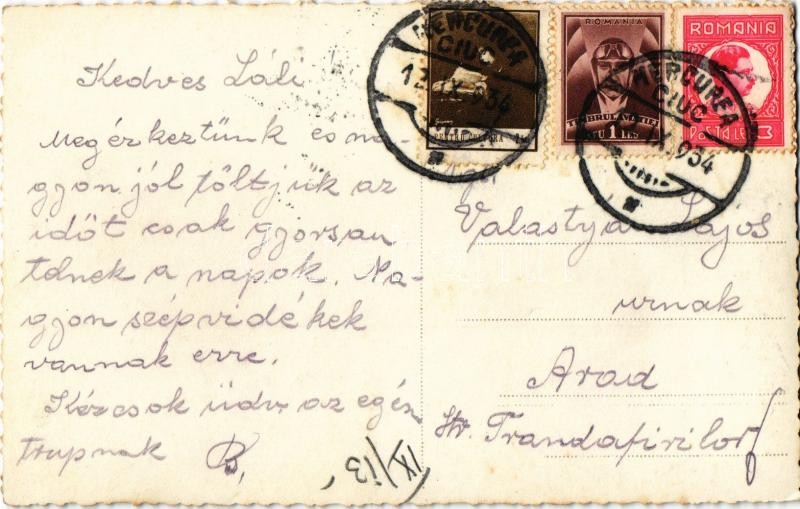 Kedves Láli
Megérkeztünk és na-
gyon jól töltjük az
időt csak gyorsan
telnek a napok. Na-
gyon szép vidékek
vannak erre.
Kézcsók üdv. az egész
trupnak B,
IX/13
MERCUREA
CIUC
12 IX 934
ROMANIA
TIMBRUL AVIATIEI
1 LEU
MERCUREA
CIUC
IX 934
ROMANIA
POSTA LEI 3
Valastyán Lajos
urnak
Arad
Str. Trandafirilor